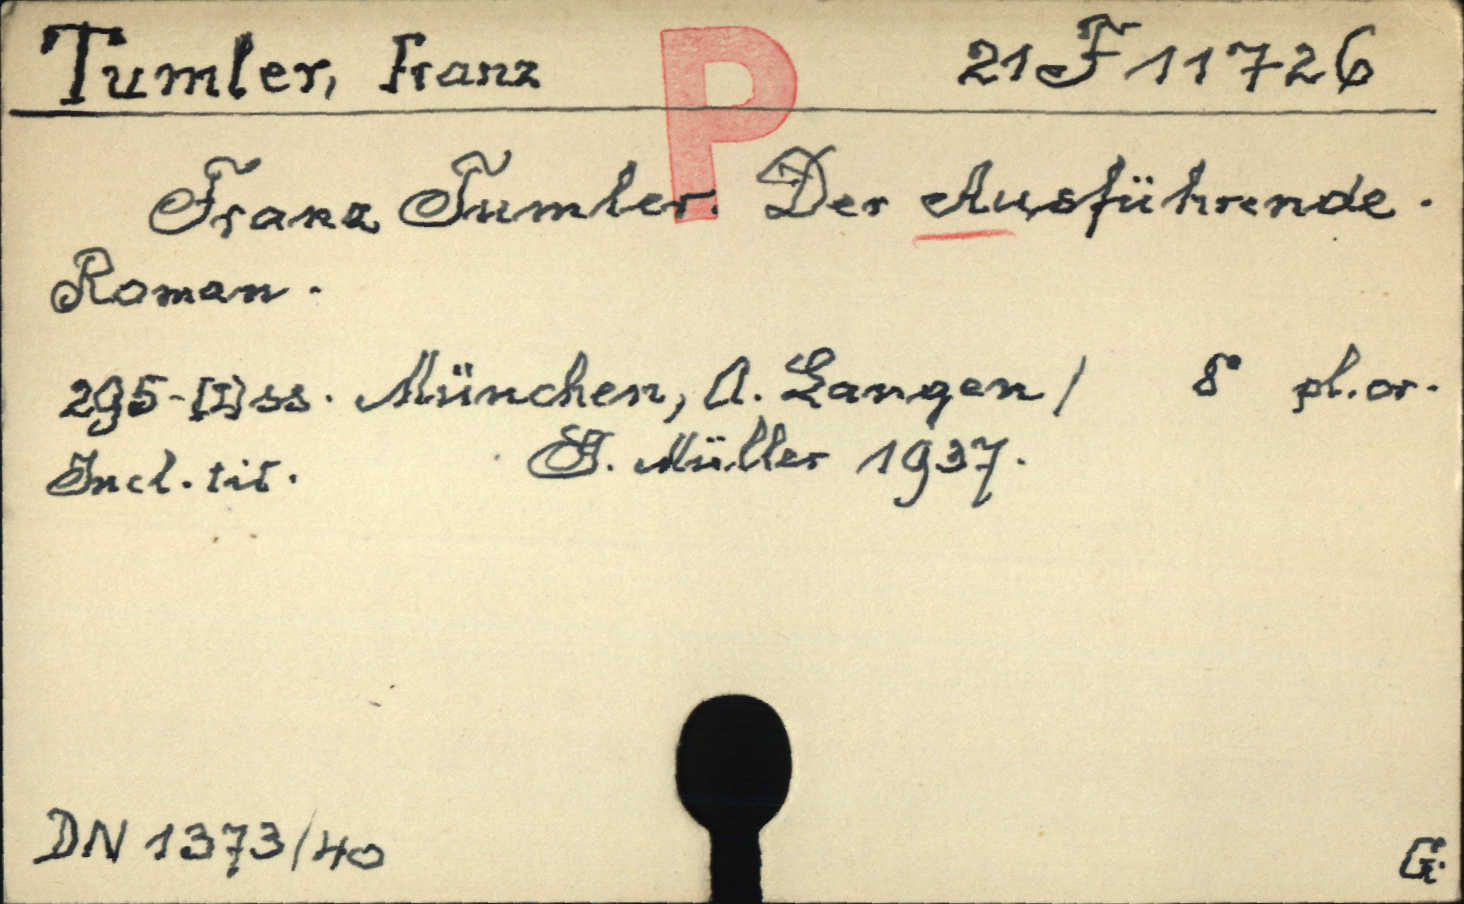 Tumler, Franz P 21 F 11726
Franz Tumler. Der Ausführende.
Roman.
295-[I] ss. München, A. Langen / 8° pl. or.
Incl. tit. G. Müller 1937.
DN 1373/40
G.